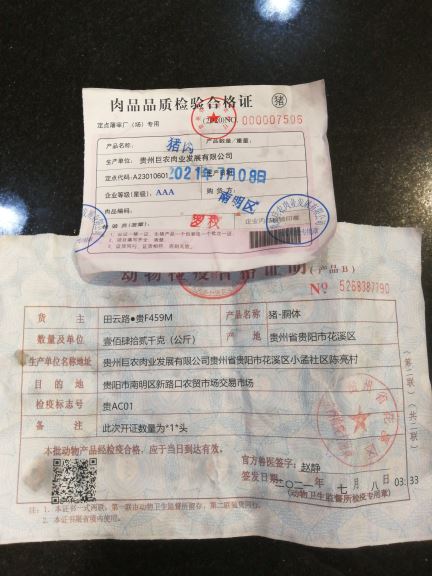 肉品品质检验合格证 猪
定点屠宰厂（场）专用 (2020)NO. 000007506
产品名称： 猪肉 产品数量/重量：
生产单位：贵州巨农肉业发展有限公司
定点代码：A23010601 生产日期： 2021年7月09日
企业等级(星级)：AAA 购货方： 南明区
肉品编码：
动物检疫合格证明（产品B）
№ 5268387790
货主 田云路●贵F459M 产品名称 猪-胴体
数量及单位 壹佰肆拾贰千克（公斤） 产地 贵州省贵阳市花溪区
生产单位名称地址 贵州巨农肉业发展有限公司贵州省贵阳市花溪区小孟社区陈亮村
目的地 贵阳市南明区新路口农贸市场交易市场
检疫标志号 贵AC01
备注 此次开证数量为*1*头
本批动物产品经检疫合格，应于当日到达有效。
官方兽医签字：赵静
签发日期：二〇二一年 七月 八日 03:33
（动物卫生监督所检疫专用章）
注：1. 本证书一式两联，第一联由动物卫生监督所留存，第二联随货同行。
2. 本证书限省境内使用。
（第二联）
共二联